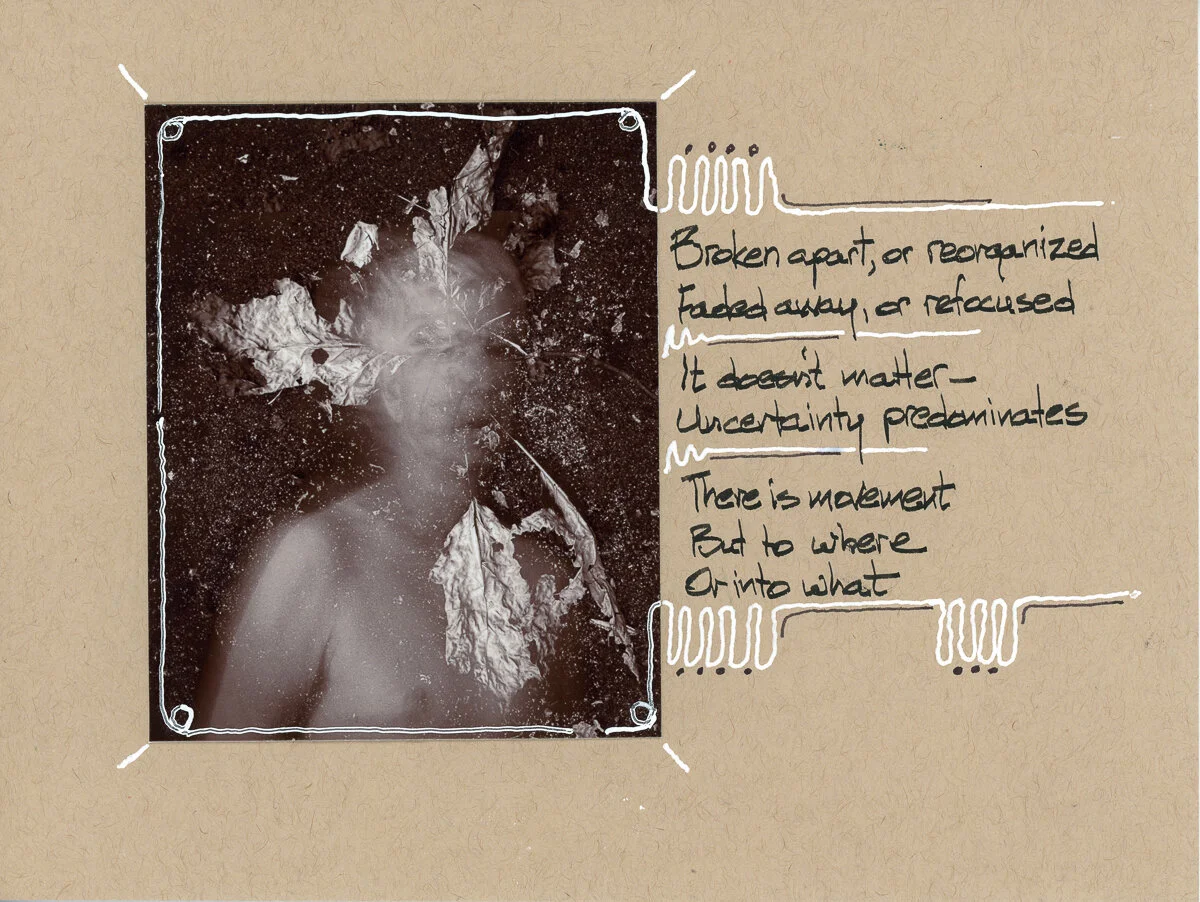 Broken apart, or reorganized
Faded away, or refocused
It doesn't matter—
Uncertainty predominates
There is movement
But to where
Or into what